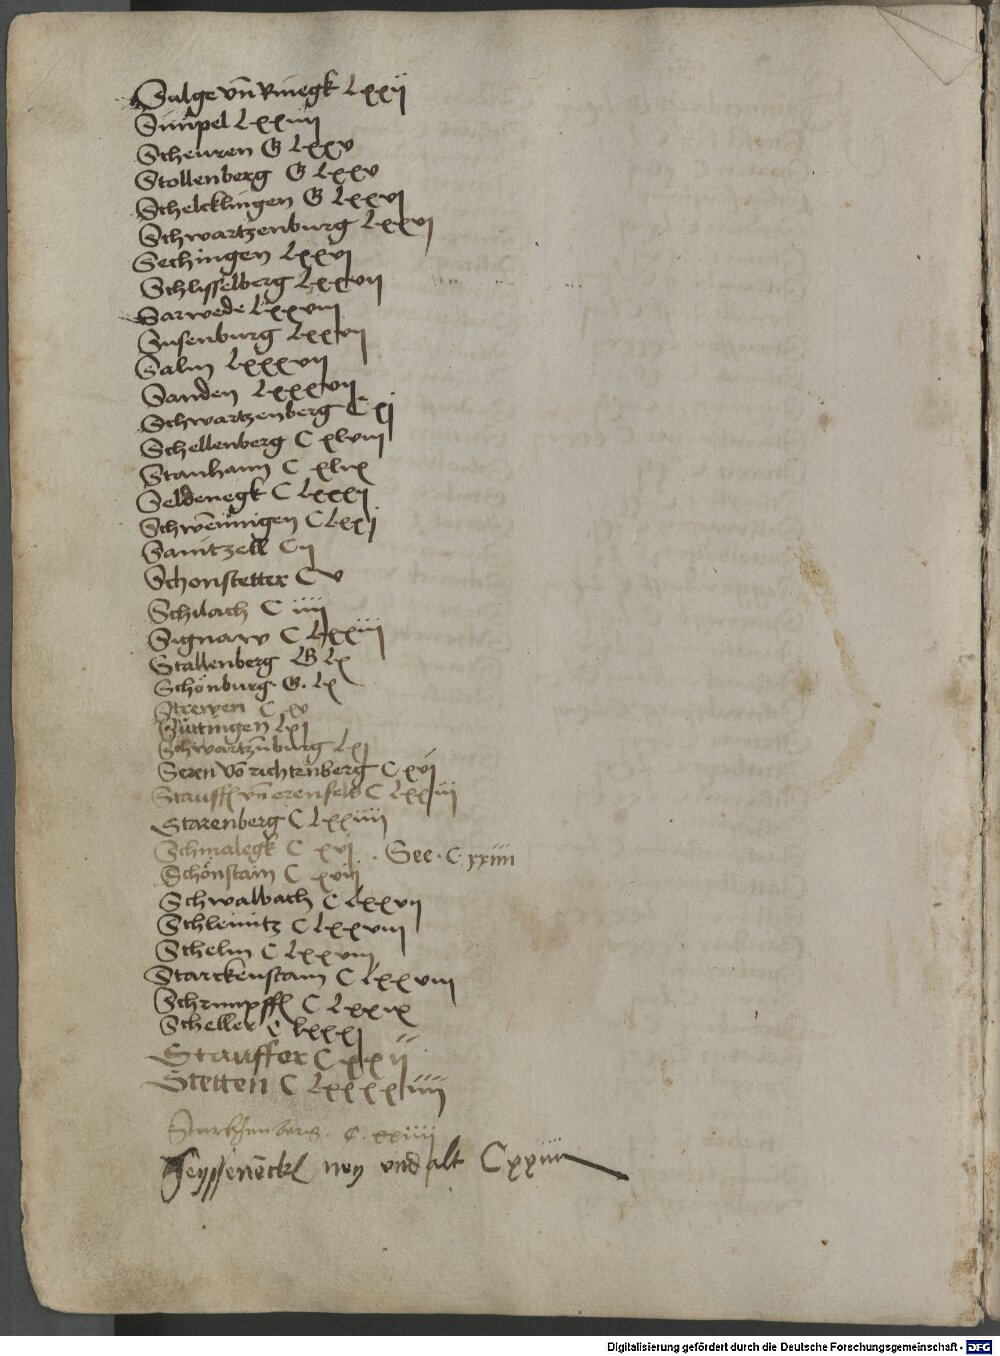 Salge vn̄ Rinegk Lxxij
Simpel Lxxiiij
Scheuren G Lxxv
Stollenberg G Lxxv
Schelcklingen G Lxxvj
Schwartzenburg Lxxvj
Sechingen Lxxvj
Schlisselberg Lxxvij
Sarwede Lxxviij
Susenburg Lxxvij
Salm Lxxxvij
Sanden Lxxxvij
Schwartzenberg C xj
Schellenberg C xlviij
Stauhaim C xlix
Seldenegk C Lxxxj
Schwēnigen C Lxxj
Sanitzell C ij
Schonstetter C v
Schilach C iiij
Signaw C Lxxiij
Stallenberg G Lx
Schönburg. G. Lx
Strewen C xv
Süttingen Lxj
Schwartznburg Lxj
Seren vō richtenberg C xvj
Stauff vn̄ erenfels C Lxxiij
Starenberg C Lxxiiij
Schmalegk C xvj . See. C xxiiij
Schönstain C xviij
Schwalbach C Lxxvij
Schleinitz C Lxxviij
Schelm C Lxxviij
Starckenstain C Lxxviij
Schrimpff C Lxxix
Scheller C Lxxxj
Stauffer C xxij
Stetten C Lxxxxiiij
C. xxiiij
Seyssenēckl ney vnd alt C xxiiij
Digitalisierung gefördert durch die Deutsche Forschungsgemeinschaft - DFG